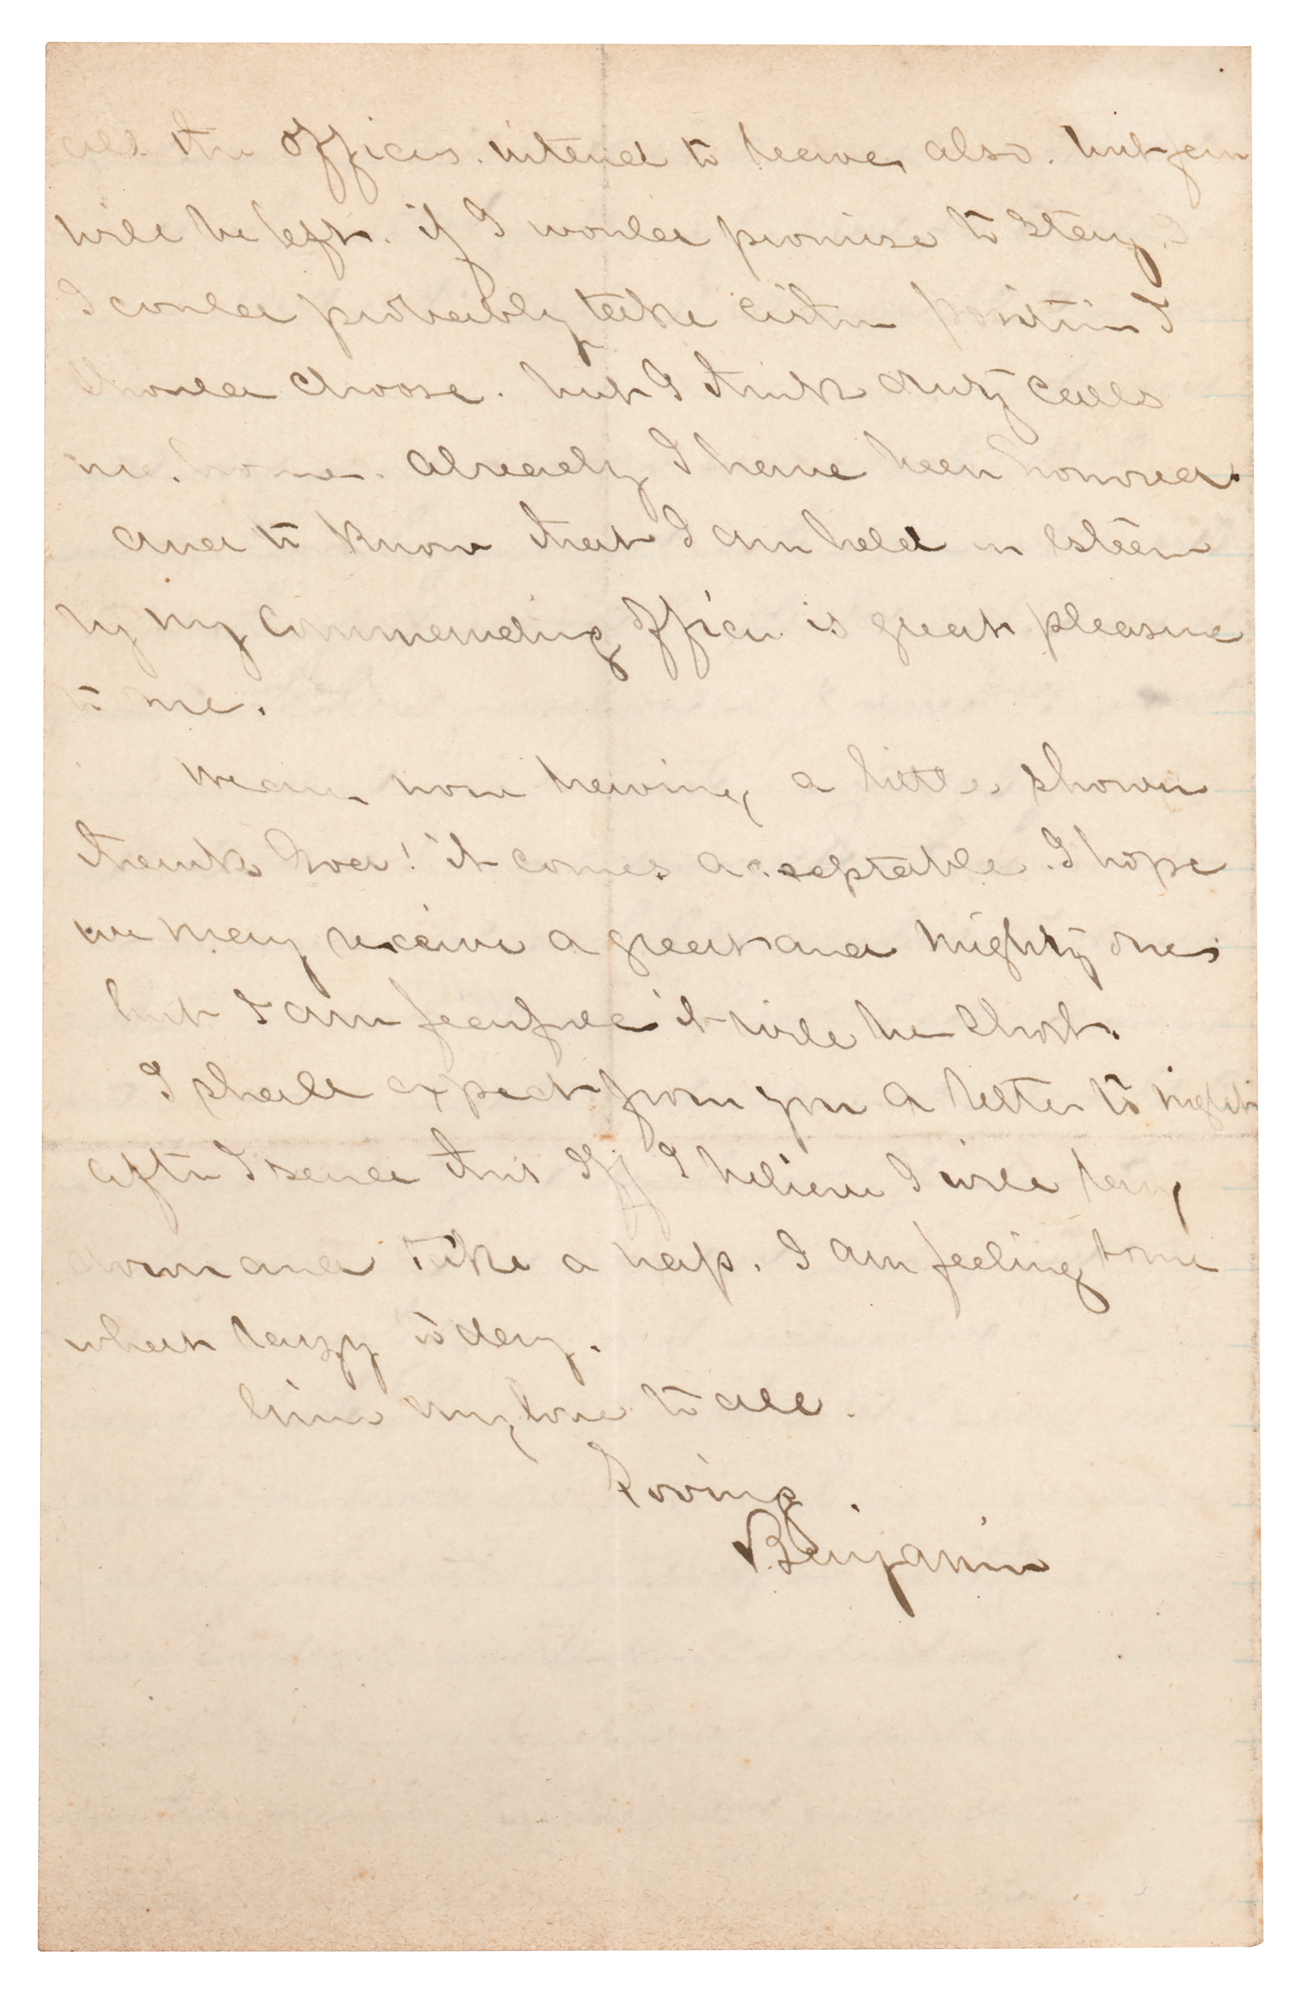 all the officers. intend to leave, also. but few
will be left. if I would promise to stay. I
I could probably take either position I
should choose. but I think duty calls
me. home. Already I have been honored.
and to know that I am held in esteem
by my Commanding Officer is great pleasure
to me.
We are now having a little shower
thanks God! it comes acceptable. I hope
we may receive a great and mighty one,
but I am fearful it will be short.
I shall expect from you a letter to night
after I send this off I believe I will lay
down and take a nap. I am feeling some
what lazy to day.
Give my love to all.
Loving
Benjamin